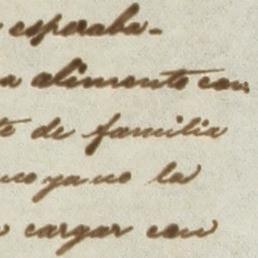 esperaba-
a alimento con
te de familia
no ya no la
cargar con